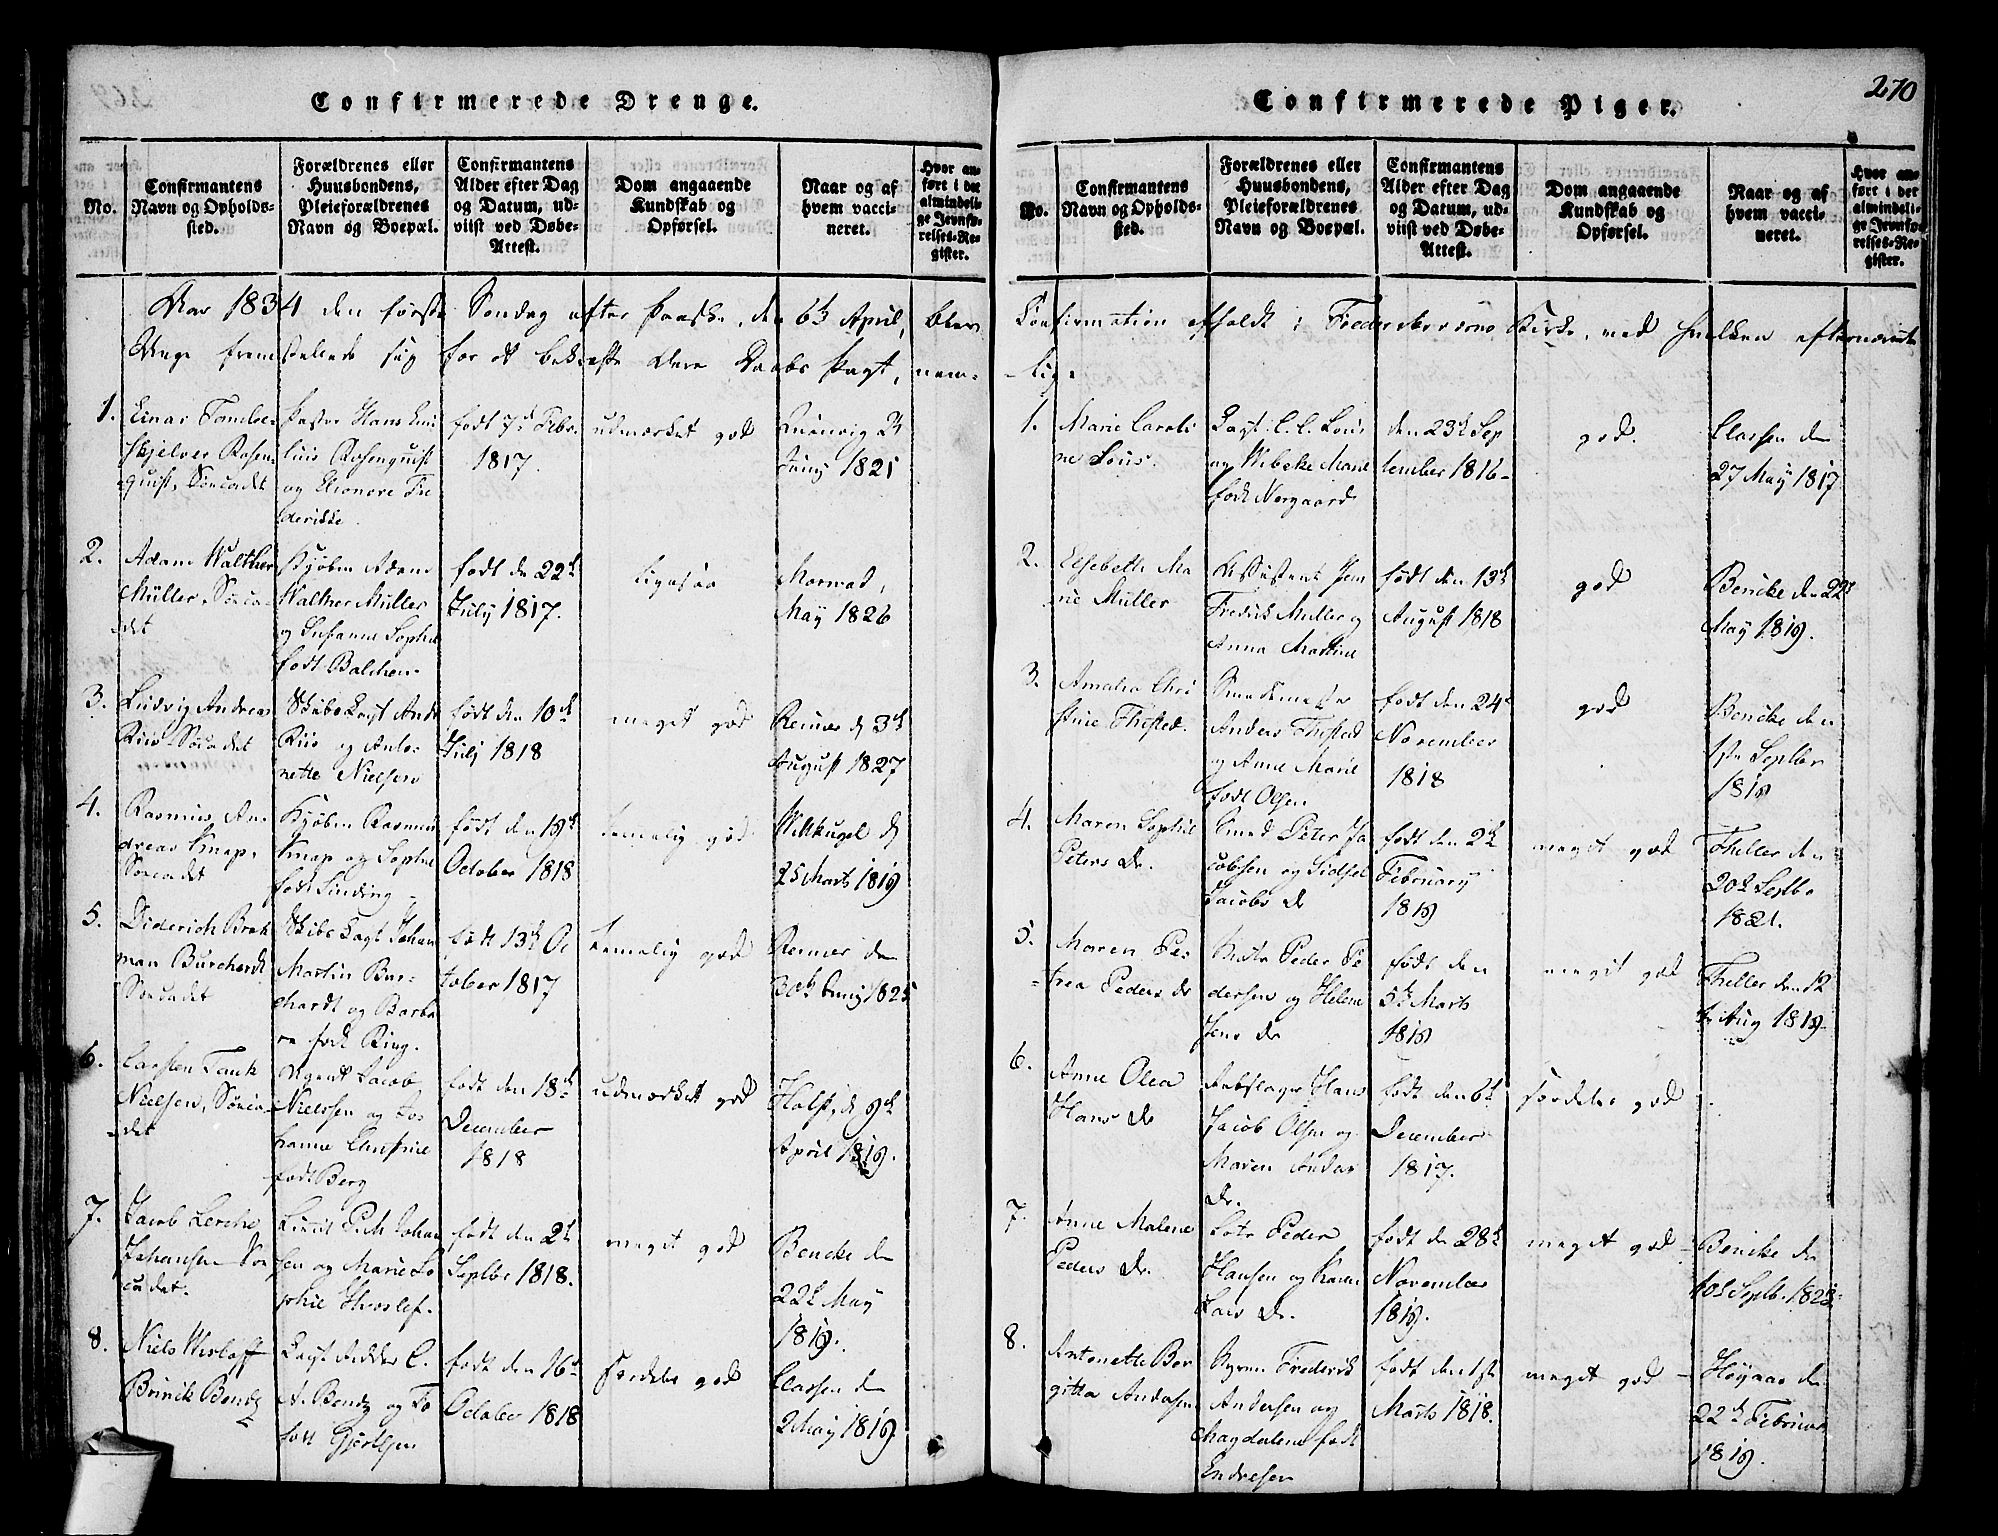 Confirmerede Drenge.
No.
Confirmantens
Navn og Opholds-
sted.
Forældrenes eller
Huusbondens,
Pleieforældrenes
Navn og Boepæl.
Confirmantens
Alder efter Dag
og Datum, ud-
viist ved Døbe-
Attest.
Dom angaaende
Kundskab og
Opførsel.
Naar og af
hvem vacci-
neret.
Hvor an-
ført i det
almindeli-
ge Jevnfø-
relses-Re-
gister.
Aar 1834 den første Søndag efter Paaske, den 6te April, blev
Unge fremstillede sig for at bekræfte deres Daabs Pagt, nem-
1.
Einar
skjelver Rosen-
quist, Søecadet
Pastor Hans
Rosenquist
og Eleonore Fre
derikke
født 7d Febr.
1817.
udmærket god
Juny 1821
2.
Adam Walther
Müller, Søeca-
det
Kjøbm Adam
Walther Müller
og Susanne Sophie
født Balchen
født den 22de
July 1817.
ligesaa
May 1826
3.
Ludvig Andreas
Riis Søecadet
Skibs Capt Andr
Riis og
nette Nielsen
født den 10de
July 1818
meget god
Reimer d 3de
August 1827
4.
Rasmus An-
dreas Knap,
Søecadet
Kjøbm Rasmus
Knap og Sophie
født Sinding
født den 19de
October 1818
temelig god
25 Marts 1819
5.
Diderich
man Burchardt
Søecadet
Skibs Capt Johan
Martin Bur-
chardt og Barba
ra født Ring.
født 13de Oc
tober 1817
temelig god
Reimer den
30te Juny 1825
6.
Carsten Tank
Nielsen, Søeca-
det
Agent Jacob
Nielssen og Jo-
hanne
født Berg
født den 18de
December
1818
udmærket god
Holst, d. 9de
April 1819.
7.
Jacob Lerche
Johansen Søe
cadet.
P. M. Johan
sen og Marie So
phie Hvoslef.
født den 2de
Septbr 1818.
meget god
Bencke den
22de May
1819.
8.
Niels
Brinck Bendz
Capt C.
A. Bendz og
født Gjertsen
født den 16de
October 1818
særdeles god
Classen den
2 May 1819
Confirmerede Piger.
270
No.
Confirmantens
Navn og Opholds-
sted.
Forældrenes eller
Huusbondens,
Pleieforældrenes
Navn og Boepæl.
Confirmantens
Alder efter Dag
og Datum, ud-
viist ved Døbe-
Attest.
Dom angaaende
Kundskab og
Opførsel.
Naar og af
hvem vacci-
neret.
Hvor an-
ført i det
almindeli-
ge Jevnfø-
relses-Re-
gister.
Confirmation afholdt i Frederiksværns Kirke, ved hvilken efternævnte
-lig:
1.
Marie Caroli
ne Lous.
Capt. C. C. Lous
og Wibeke Marie
født Nørgaard
den 23de Sep
tember 1816
god.
Classen den
27 May 1817
2.
Elsebeth Ma
rie Müller
Assistent Jens
Fredrik Muller og
Anna Martine
født den 13de
August 1818
god
Bencke den 22de
May 1819.
3.
Amalia Chri
stine Thisted.
Smedemester
Anders Thisted
og Anne Marie
født Olsen
født den 24de
November
1818
god
Bencke den
1ste Septbr
1819
4.
Maren Sophie
Peters Dr.
Smed Peter Ja
cobsen og Sidsel
Jacobs Dr
født den 2de
February
1819
meget god
Theller den
20de Septbr
1821.
5.
Maren Pe-
trea Peders Dr
Peder Pe
dersen og Helene
Jens Dr
født den
5te Marts
1819
meget god
Theller den 12
Aug 1819.
6.
Anne Olea
Hans Dr
Hans
Jacob Olsen og
Maren Anders
Dr.
født den 6te
December
1817.
særdeles god
7.
Anne Malene
Peders Dr.
Lots Peder
Hansen og Karen
Lars Dr.
født den 28de
November
1819.
meget god
Bencke den
10de Septb. 1823
8.
Antonette Bor
gitta Andersen
Frederik
Andersen og
Magdalena født
Endresen
født den 1ste
Marts 1818.
meget god
Høyaas den
22de Februar
1819.